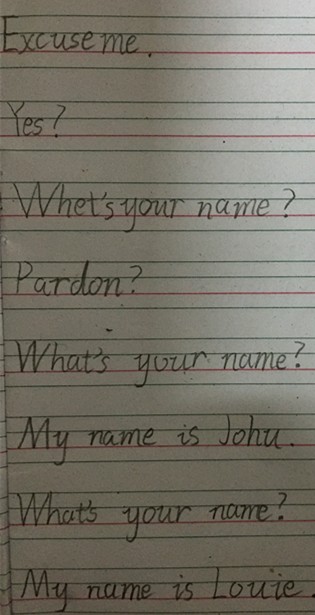 Excuse me.
Yes?
Whet's your name?
Pardon?
What's your name?
My name is Johu.
What's your name?
My name is Louie.